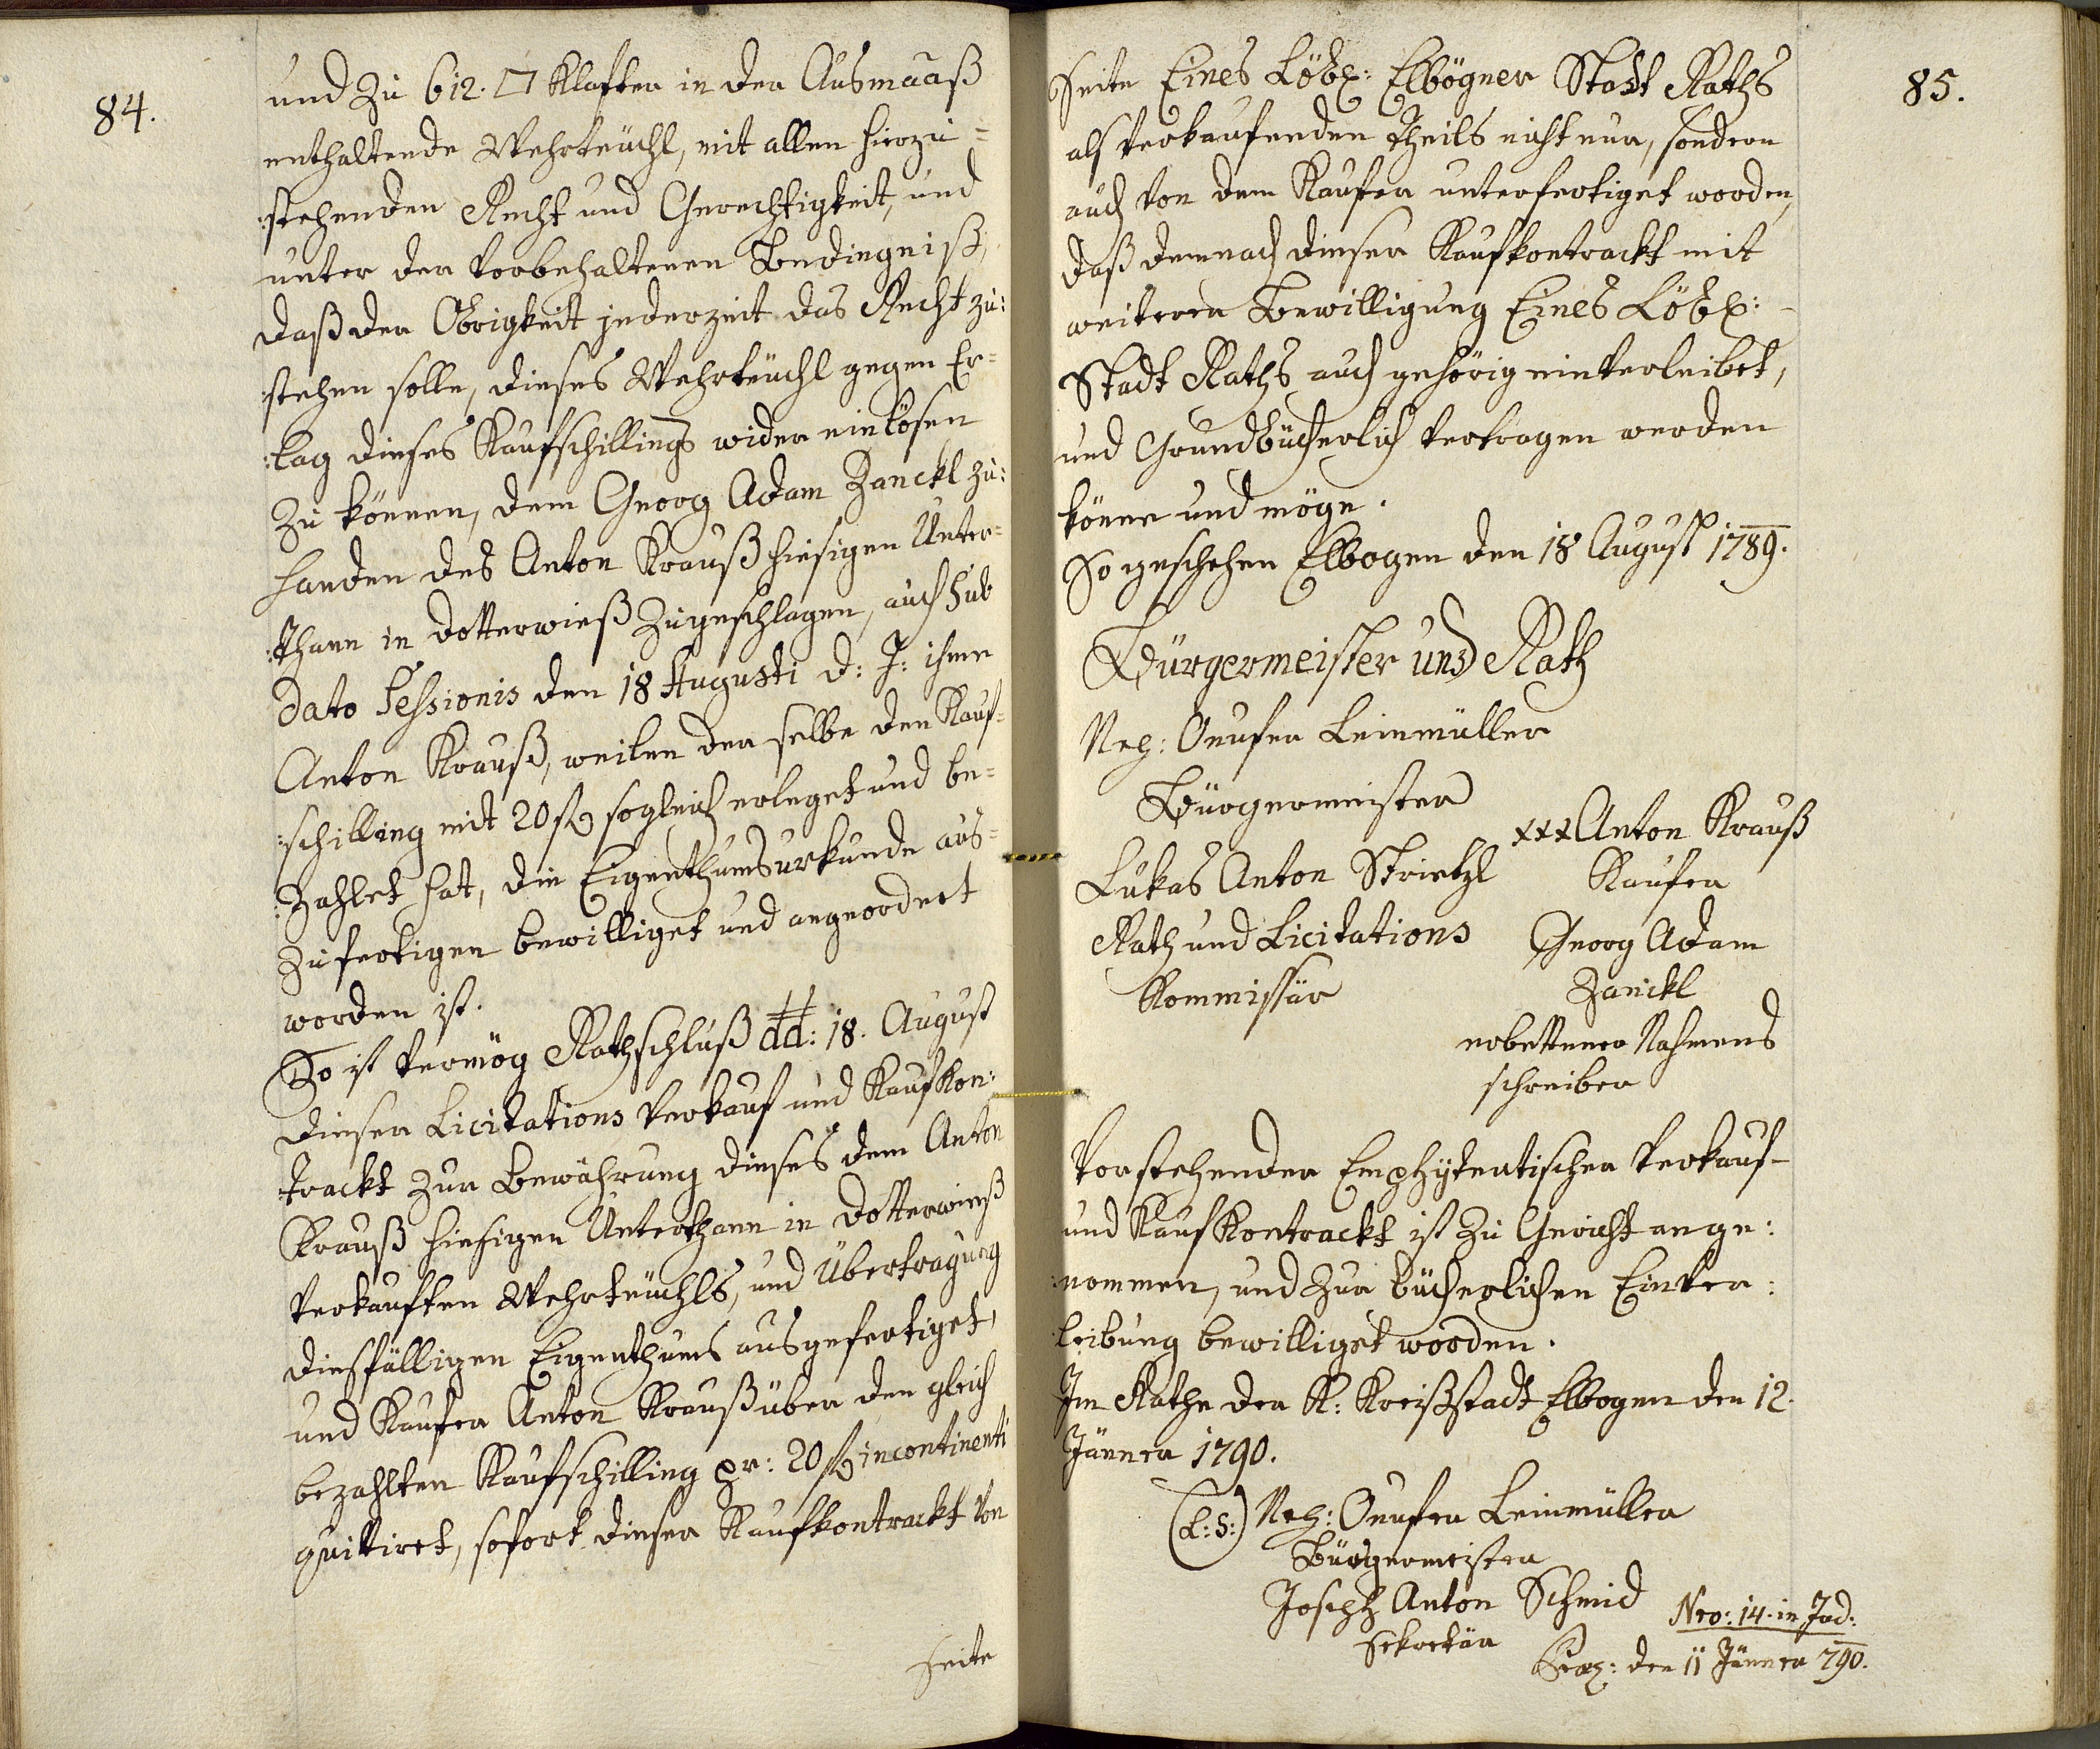 84.
und zu 612. □ Klafter in der Ausmaaß
enthaltende Wehrteüchl, mit allen hierzu=
:stehenden Recht und Gerechtigkeit, und
unter der vorbehaltenen Bedingniß,
daß der Obrigkeit jederzeit das Recht zu:
:stehen solle, dieses Wehrteüchl gegen Er=
:lag dieses Kaufschillings wider einlösen
zu können, dem Georg Adam Zanckl zu:
handen des Anton Krauß hiesigen Unter=
:thann in Dotterwieß zugeschlagen, auch sub
dato Sessionis den 18 Augusti d: J: ihme
Anton Krauß, weilen der selbe den Kauf=
:schilling mit 20 f sogleich erleget und be=
:zahlet hat, die Eigenthumsurkunde aus=
zufertigen bewilliget und angeordnet
worden ist.
So ist vermög Rathschluß dd: 18. August
dieser Licitations Verkauf und Kaufkon:
:trackt zur Bewährung dieses dem Anton
Krauß hiesigen Unterthann in Dotterwieß
verkauften Wehrteüchls, und Übertragung
diesfälligen Eigenthums ausgefertiget,
und Kaufer Anton Krauß über den gleich
bezahlten Kaufschilling pr: 20 f incontinenti
quittiret, sofort dieser Kaufkontrackt von
seite
85.
Seite Eines Löbl: Elbögner Stadt Raths
als verkaufenden Theils nicht nur, sondern
auch von dem Kaufer unterfertiget worden,
daß demnach dieser Kaufkontrackt mit
weiterer Bewilligung Eines Löbl:
Stadt Raths auch gehörig einverleibet,
und Grundbücherlich vertragen werden
könne und möge.
So geschehen Elbogen den 18 August 1789.
Bürgermeister und Rath
Onufer Leinmüller
Bürgermeister
xxx Anton Krauß
Lukas Anton Strietzl
Kaufer
Rath und Licitations
Georg Adam
Kommissär
Zanckl
erbettener Nahmens
schreiber
Vorstehender Emphÿteutischer Verkauf-
und Kaufkontrackt ist zu Gericht ange:
:nommen, und zur bücherlichen Einver:
:leibung bewilliget worden.
Im Rathe der K: Kreißstadt Elbogen den 12.
Jänner 1790.
(L: S:) Onufer Leinmüller
Bürgermeister
Joseph Anton Schmid
Sekretär
Nro: 14. in Jud:
den 11 Jänner 790.